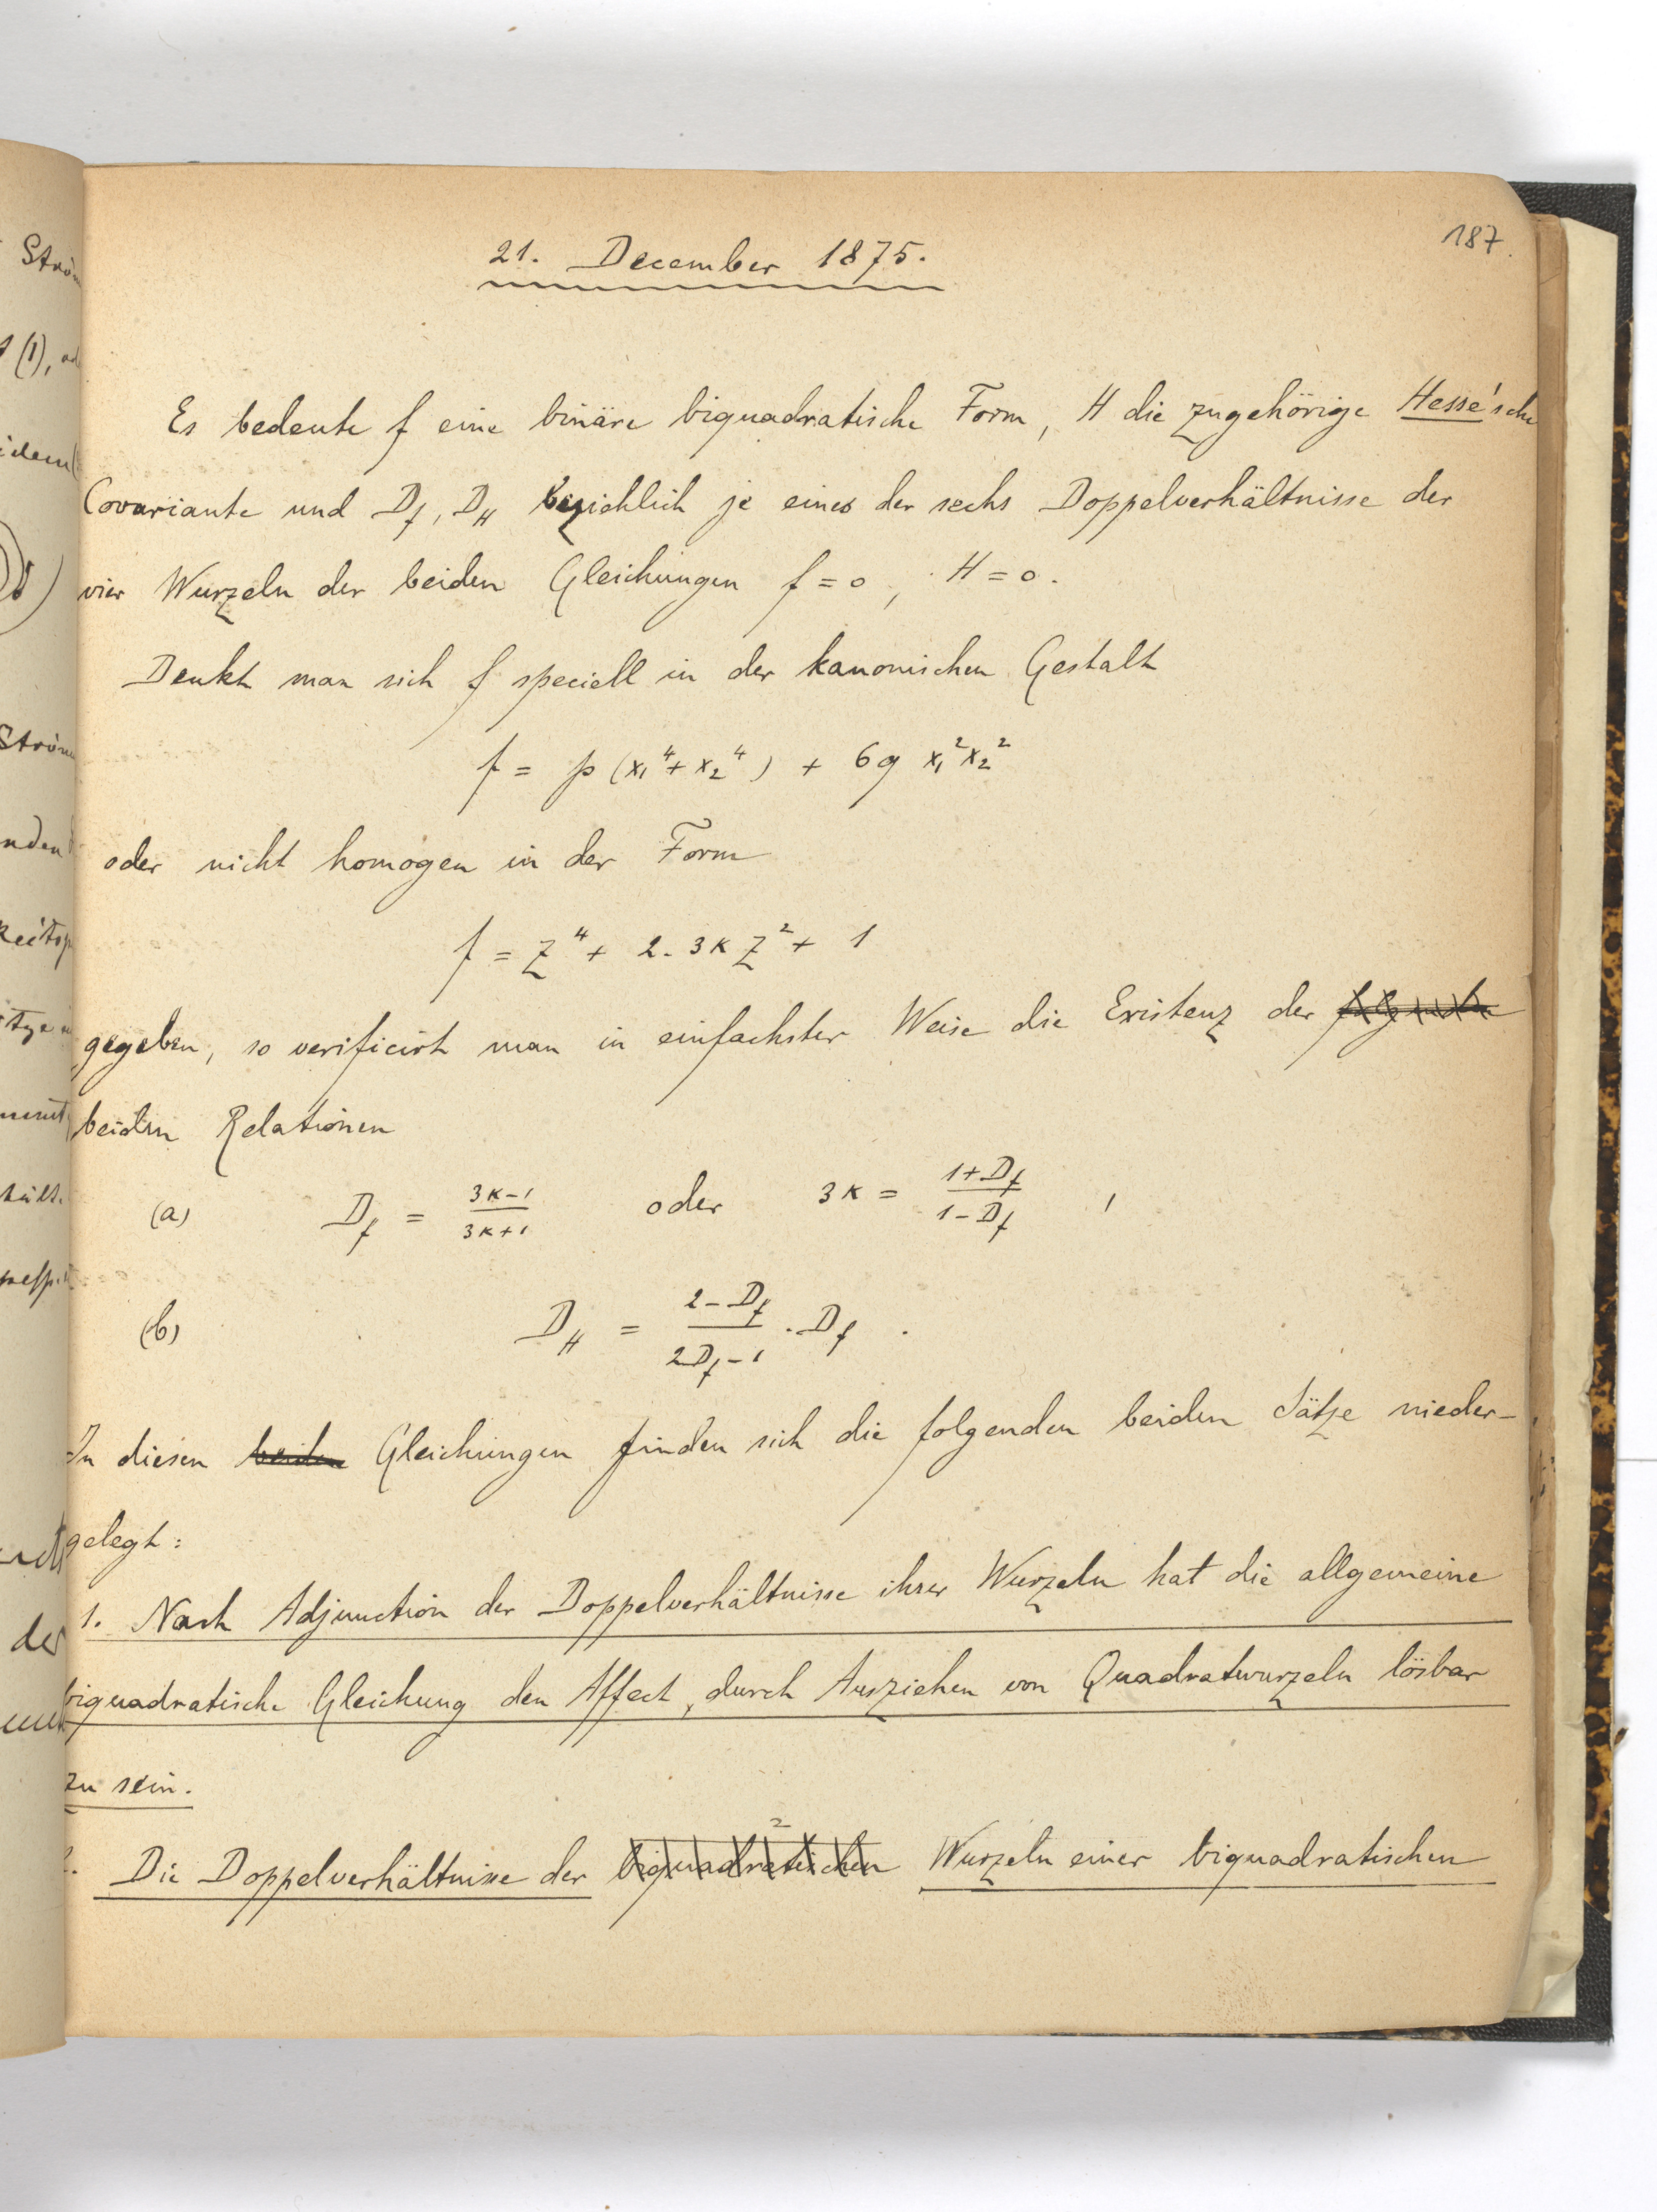 187
21. December 1875.
Es bedeute f eine binäre biquadratische Form, H die zugehörige Hesse'sche
Covariante und D_f, D_H bezichlich je eines der sechs Doppelverhältnisse der
vier Wurzeln der beiden Gleichungen f = 0, H = 0.
Denkt man sich f speciell in der kanonischen Gestalt
f = p (x₁⁴ + x₂⁴) + 6q x₁² x₂²
oder nicht homogen in der Form
f = z⁴ + 2. 3κ z² + 1
gegeben, so verificirt man in einfachster Weise die Existenz der folgenden
beiden Relationen
(a) D_f = (3κ-1)/(3κ+1) oder 3κ = (1+D_f)/(1-D_f) ,
(b) D_H = (2-D_f)/(2D_f-1) . D_f .
In diesen beiden Gleichungen finden sich die folgenden beiden Sätze nieder-
gelegt:
1. Nach Adjunction der Doppelverhältnisse ihrer Wurzeln hat die allgemeine
biquadratische Gleichung den Affect, durch Ausziehen von Quadratwurzeln lösbar
zu sein.
2. Die Doppelverhältnisse der biquadratischen Wurzeln einer biquadratischen